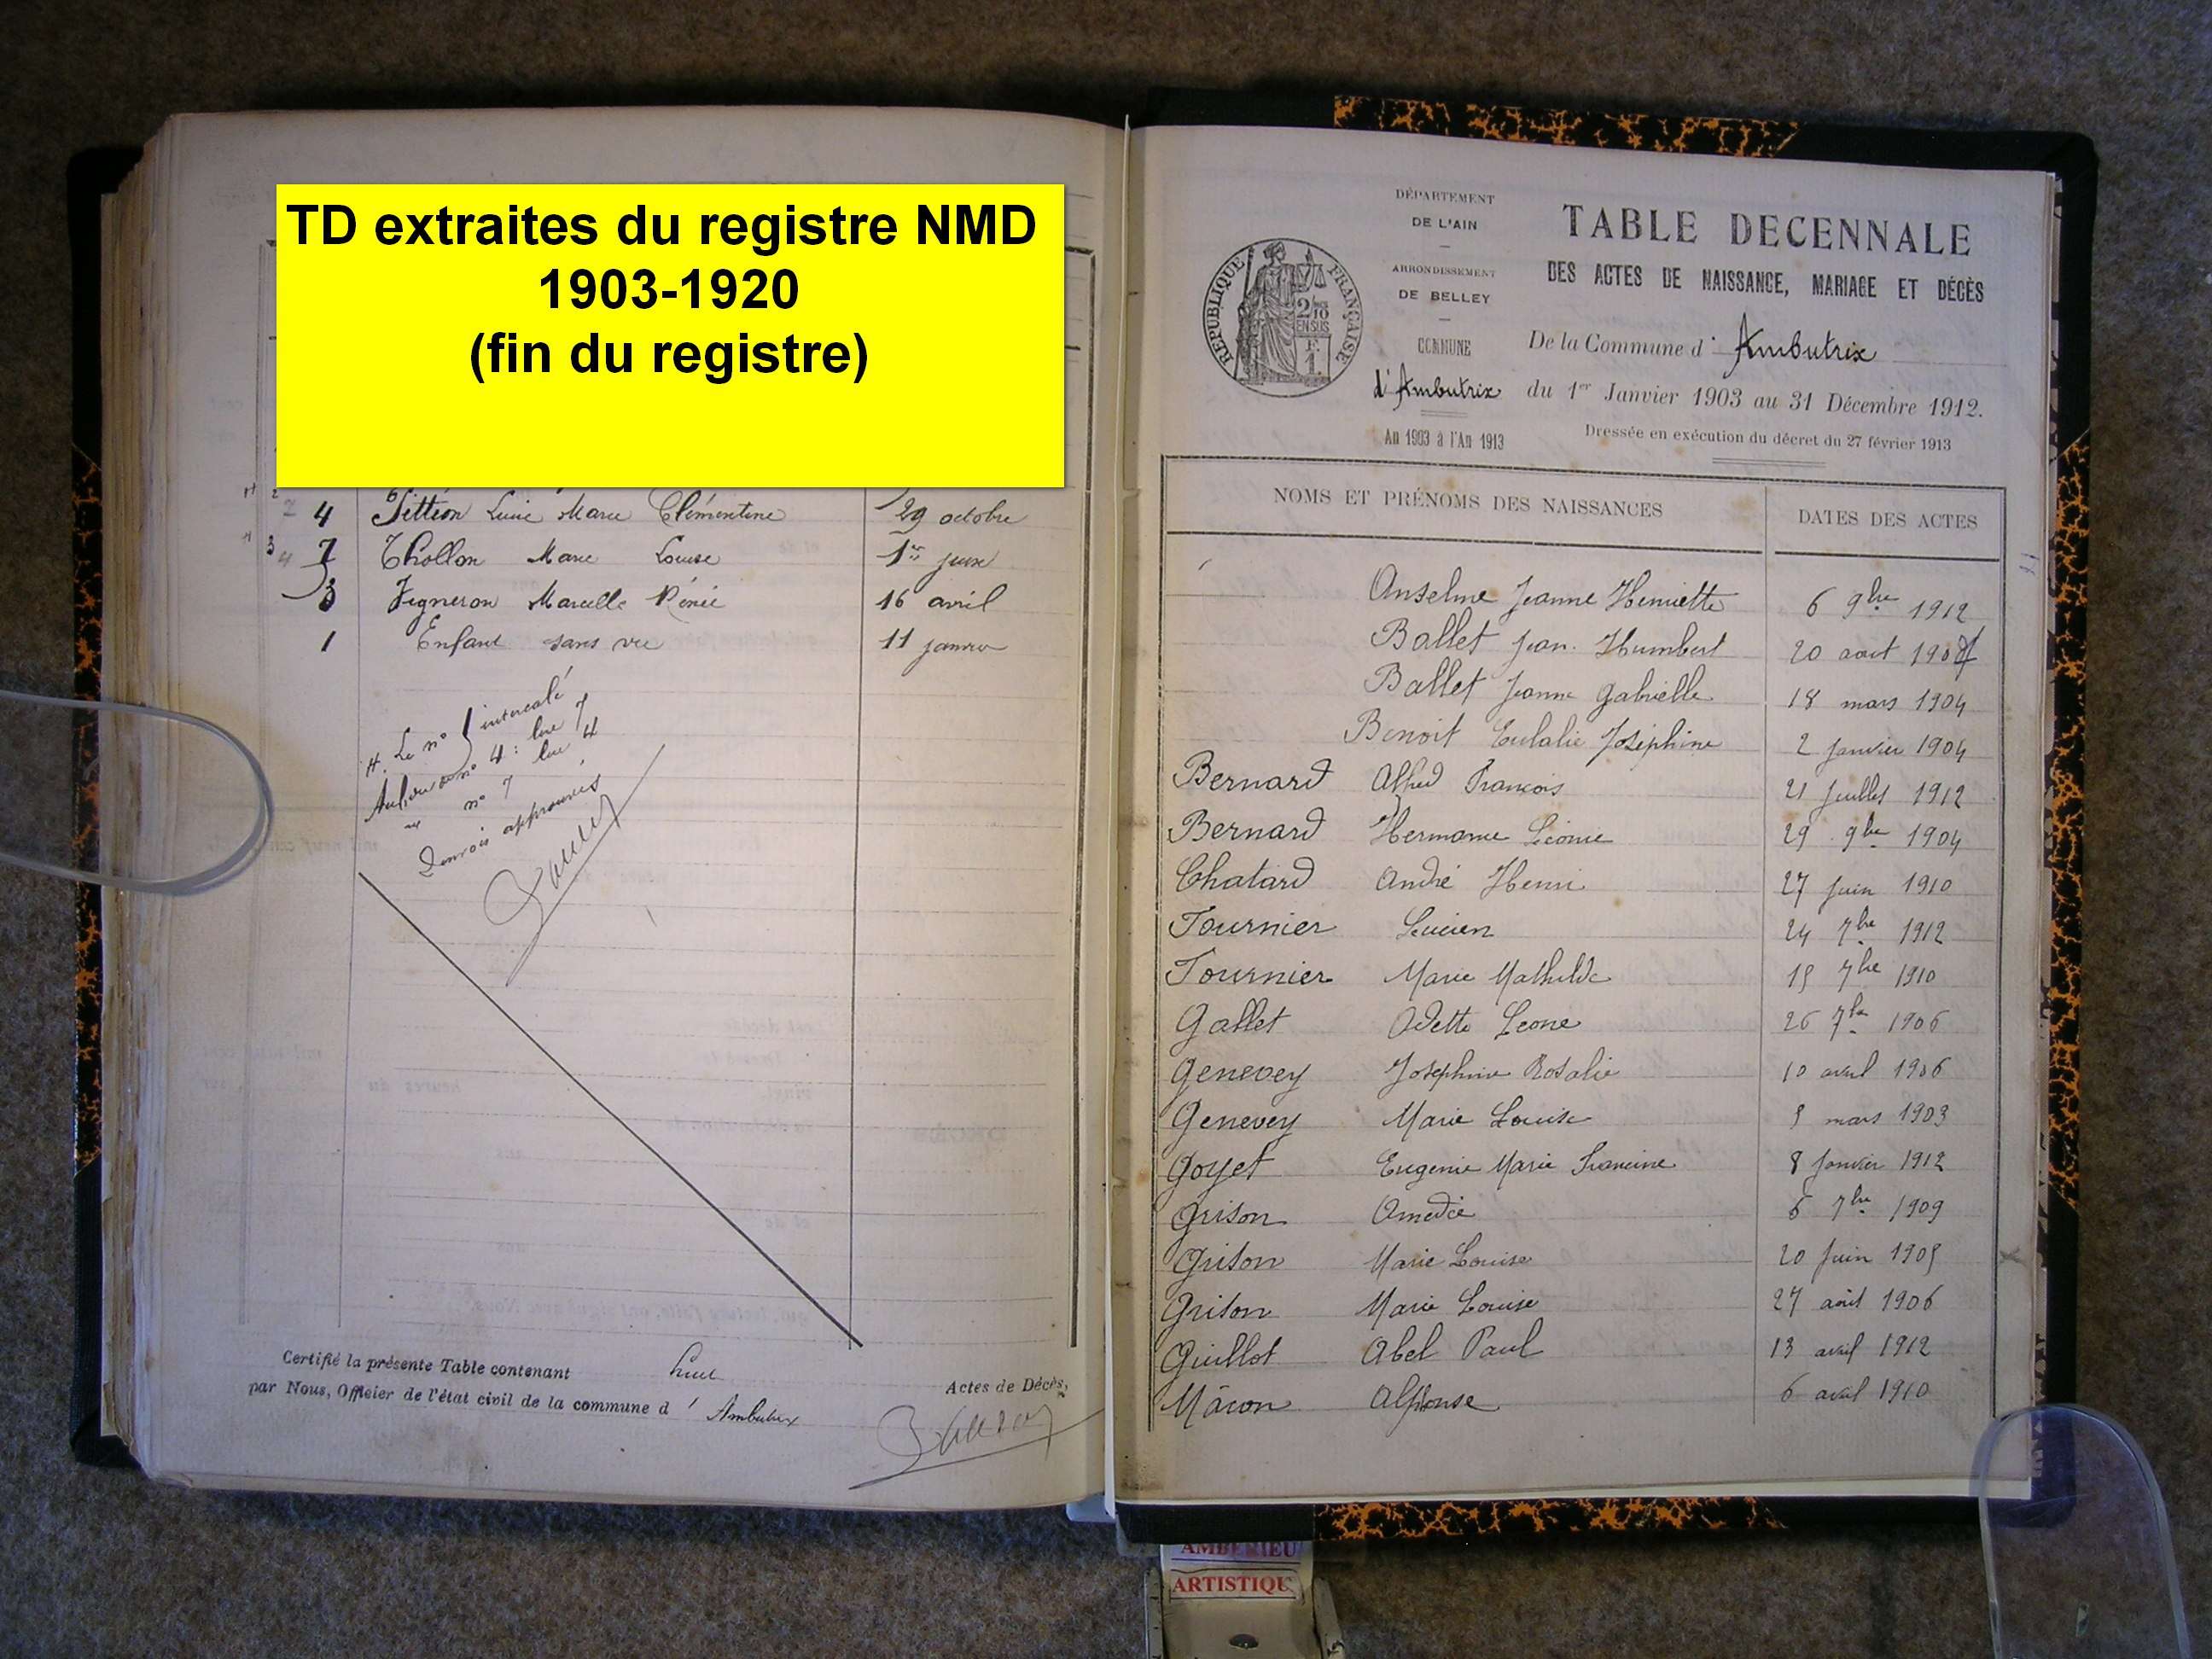 TD extraites du registre NMD
1903-1920
(fin du registre)
4 Littion Marie Clémentine 29 octobre
7 Chollon Marie Louise 1er juin
3 Vigneron Marcelle Rénée 16 avril
1 Enfant sans vie 11 janvier
Le n° intercalé
Au lieu de n° 4 : lire 7
" n° 7 lire 4
Renvois approuvés
Certifié la présente Table contenant huit Actes de Décès,
par Nous, Officier de l'état civil de la commune d' Ambutrix
DÉPARTEMENT
DE L'AIN
ARRONDISSEMENT
DE BELLEY
COMMUNE
d'Ambutrix
An 1903 à l'An 1913
RÉPUBLIQUE FRANÇAISE
2/10
EN SUS
F.
1.
TABLE DECENNALE
DES ACTES DE NAISSANCE, MARIAGE ET DÉCÈS
De la Commune d' Ambutrix
du 1er Janvier 1903 au 31 Décembre 1912.
Dressée en exécution du décret du 27 février 1913
NOMS ET PRÉNOMS DES NAISSANCES DATES DES ACTES
Anselme Jeanne Henriette 6 9bre 1912
Ballet Jean Humbert 20 aout 190
Ballet Jeanne Gabrielle 18 mars 1904
Benoit Eulalie Joséphine 2 Janvier 1904
Bernard Alfred François 21 Juillet 1912
Bernard Hermance Léonie 29 9bre 1904
Chatard André Henri 27 Juin 1910
Fournier Lucien 24 7bre 1912
Fournier Marie Mathilde 15 7bre 1910
Gallet Odette Leone 26 7bre 1906
Genevey Joséphine Rosalie 10 avril 1906
Genevey Marie Louise 5 mars 1903
Goyet Eugenie Marie Francine 8 Janvier 1912
Grison Amedée 6 7bre 1909
Grison Marie Louise 20 Juin 1905
Grison Marie Louise 27 août 1906
Guillot Abel Paul 13 avril 1912
Mâcon Alphonse 6 avril 1910
AMBERIEU
ARTISTIQU